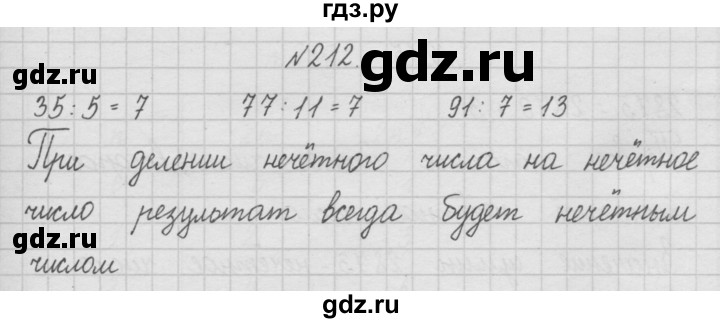 гдз.ру
№212.
gdz.ru
gdz.ru
35:5=7 77:11=7 91:7=13
При делении нечётного числа на нечётное
число результат всегда будет нечётным
gdz.ru
числом
gdz.ru